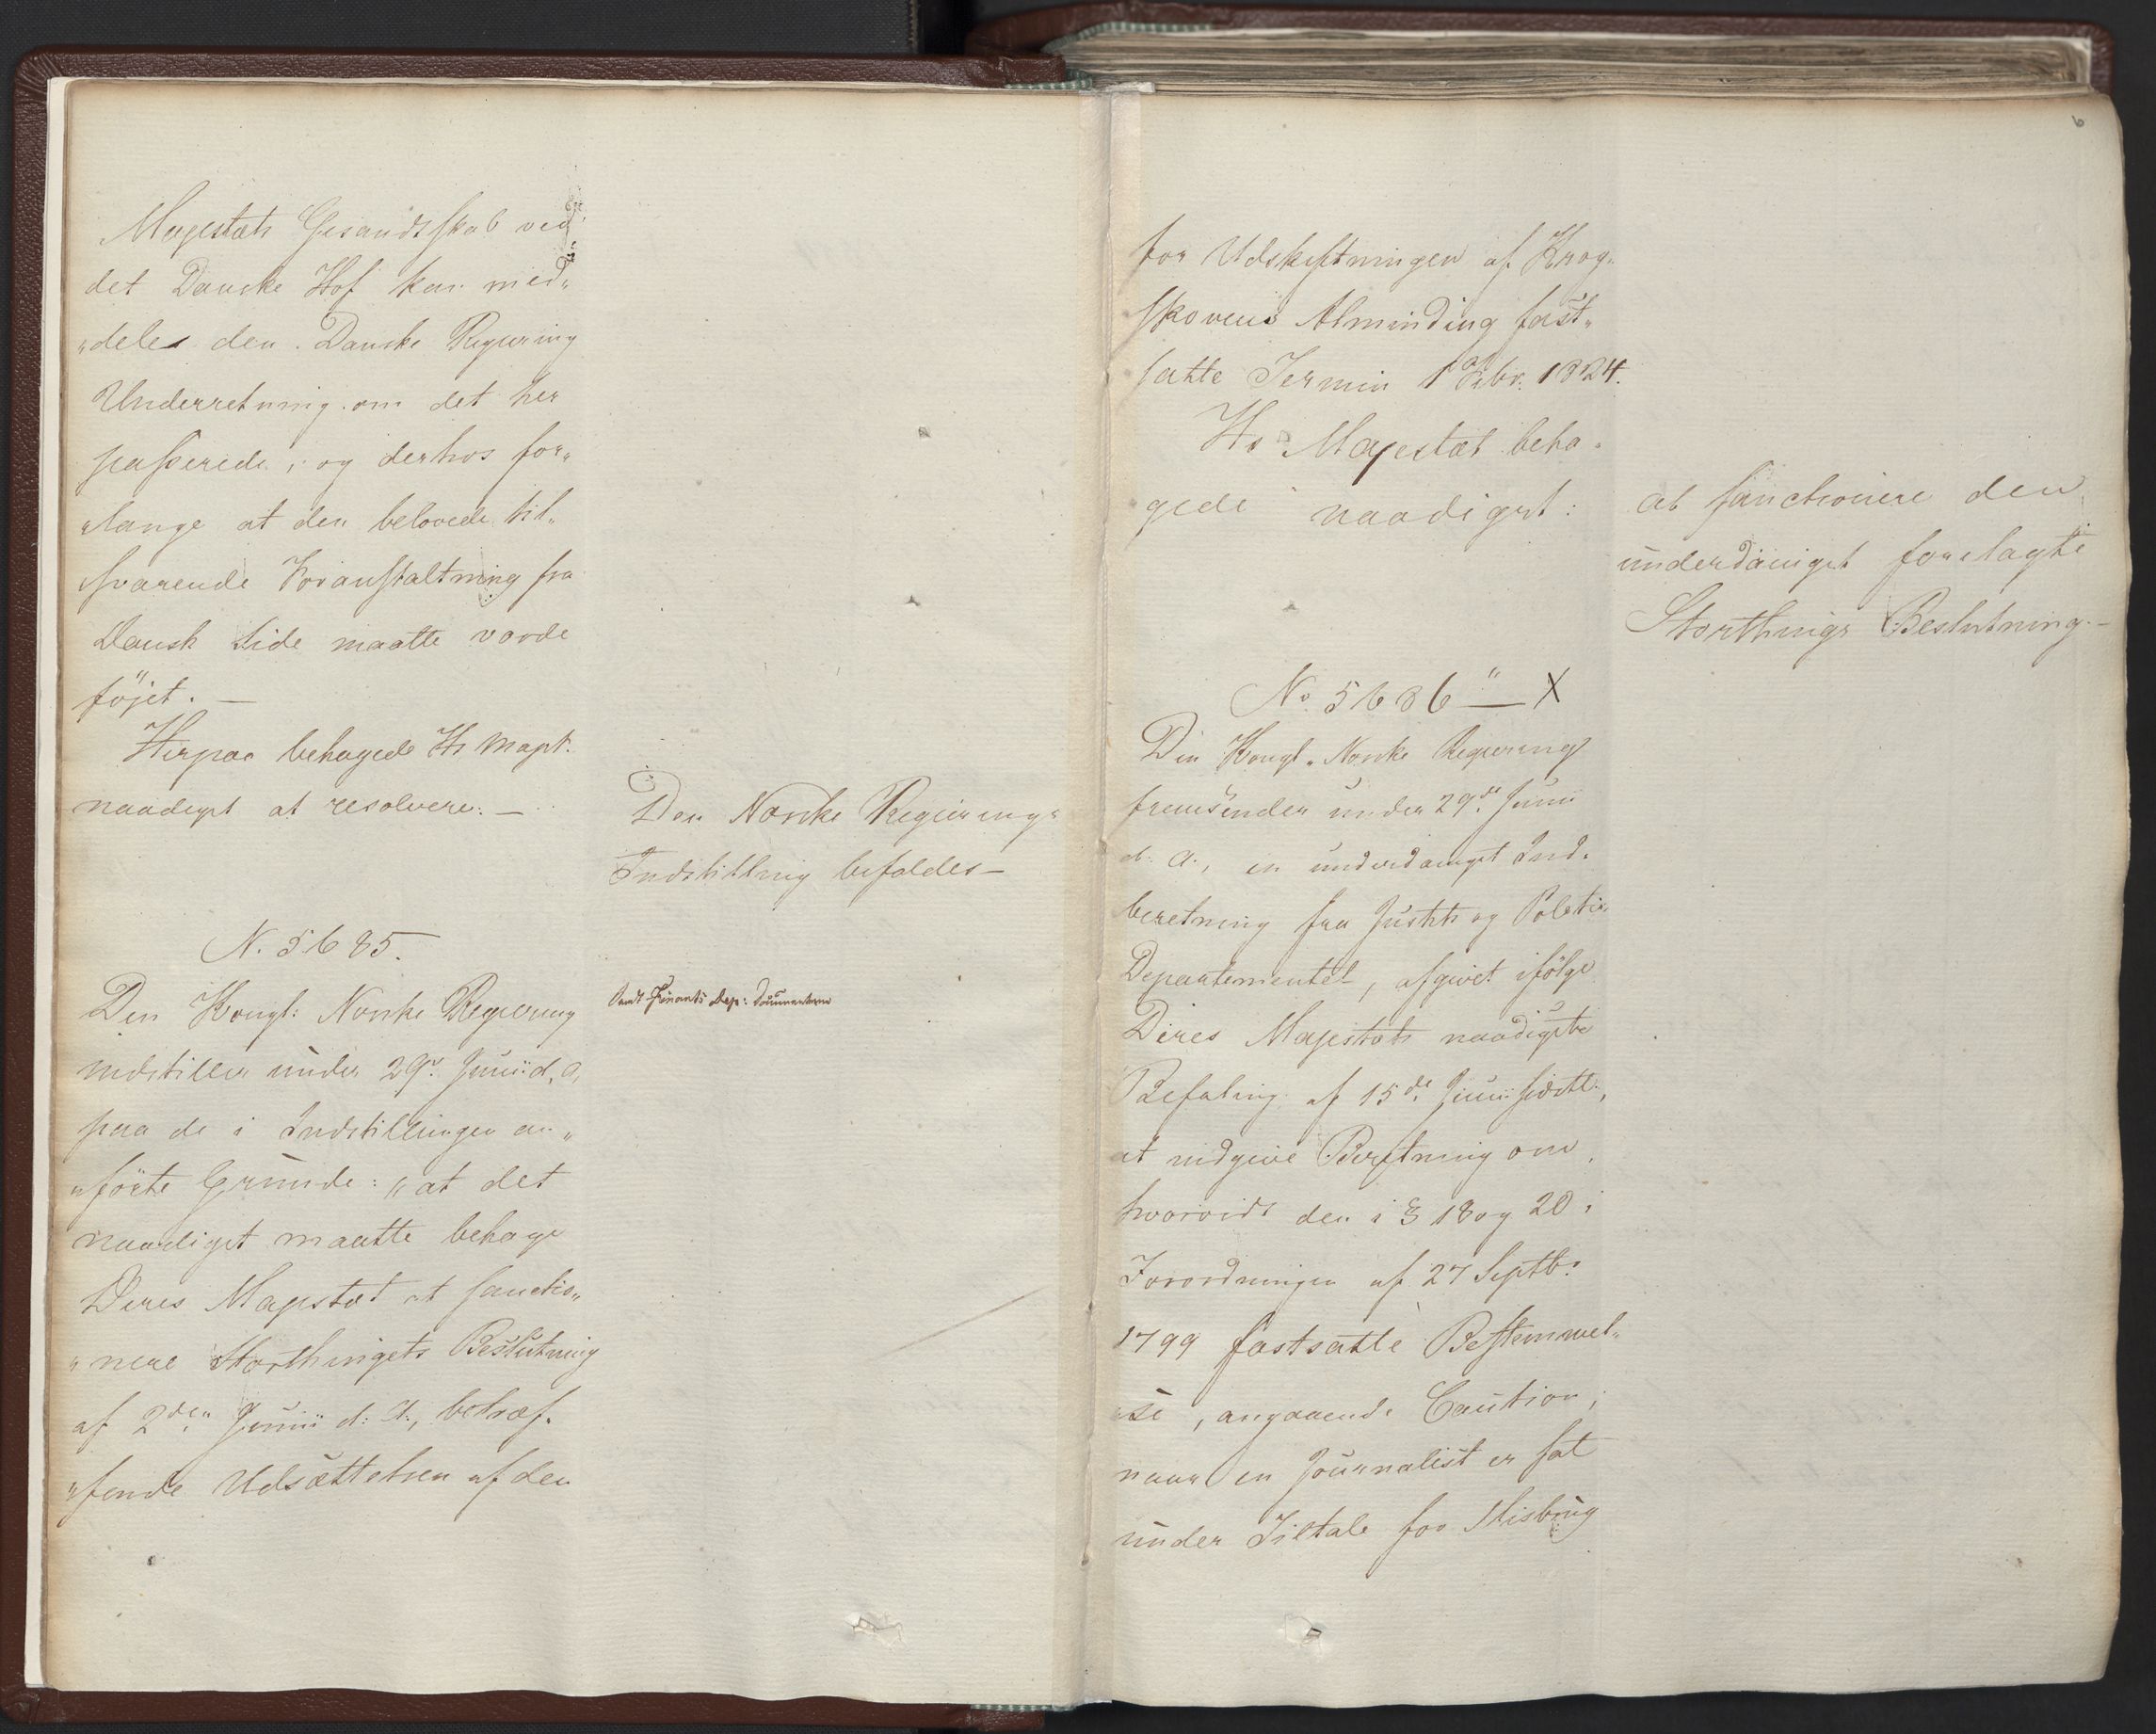 Majestæts Gesandtskab ved
det Danske Hof kan med„
„deles den Danske Regiering
Underretning om det her
passerede, og derhos for„
„lange at den belovede til„
svarende Foranstaltning fra
Dansk Side maatte vorde
föjet. —
Herpaa behagede Hs Majst.
naadigst at resolvere: —
Den Norske Regierings
Indstilling befaldes —
N. 5685.
Den Kongl: Norske Regiering
indstiller under 29de Junii d. A.
paa de i Indstillingen an„
„förte Grunde: „at det
naadigst maatte behage
Deres Majestæt at sanctio„
„nere Storthingets Beslutning
af 2den Junii d: A:, betræf„
„fende Udsættelsen af den
Finants Dep: Documenterne
6
for Udskiftningen af Krog„
skovens Alminding fast„
satte Termin 1 Febr. 1824.
Hs Majestæt beha„
gede naadigst:
at sanctionere den
underdanigst forelagte
Storthings Beslutning. —
No. 5686 " — X
Den Kongl. Norske Regiering
fremsender under 29de Junii
d: A:, en underdanigst Ind„
beretning fra Justits og Politie
Departementet, afgivet ifölge
Deres Majestæts naadigste
Befaling af 15de Junii sidstl:,
at indgive Beretning om,
hvorvidt den i § 18 og 20 i
Forordningen af 27 Septbr.
1799 fastsatte Bestemmel„
„se, angaaende Caution,
naar en Journalist er sat
under Tiltale for Misbrug